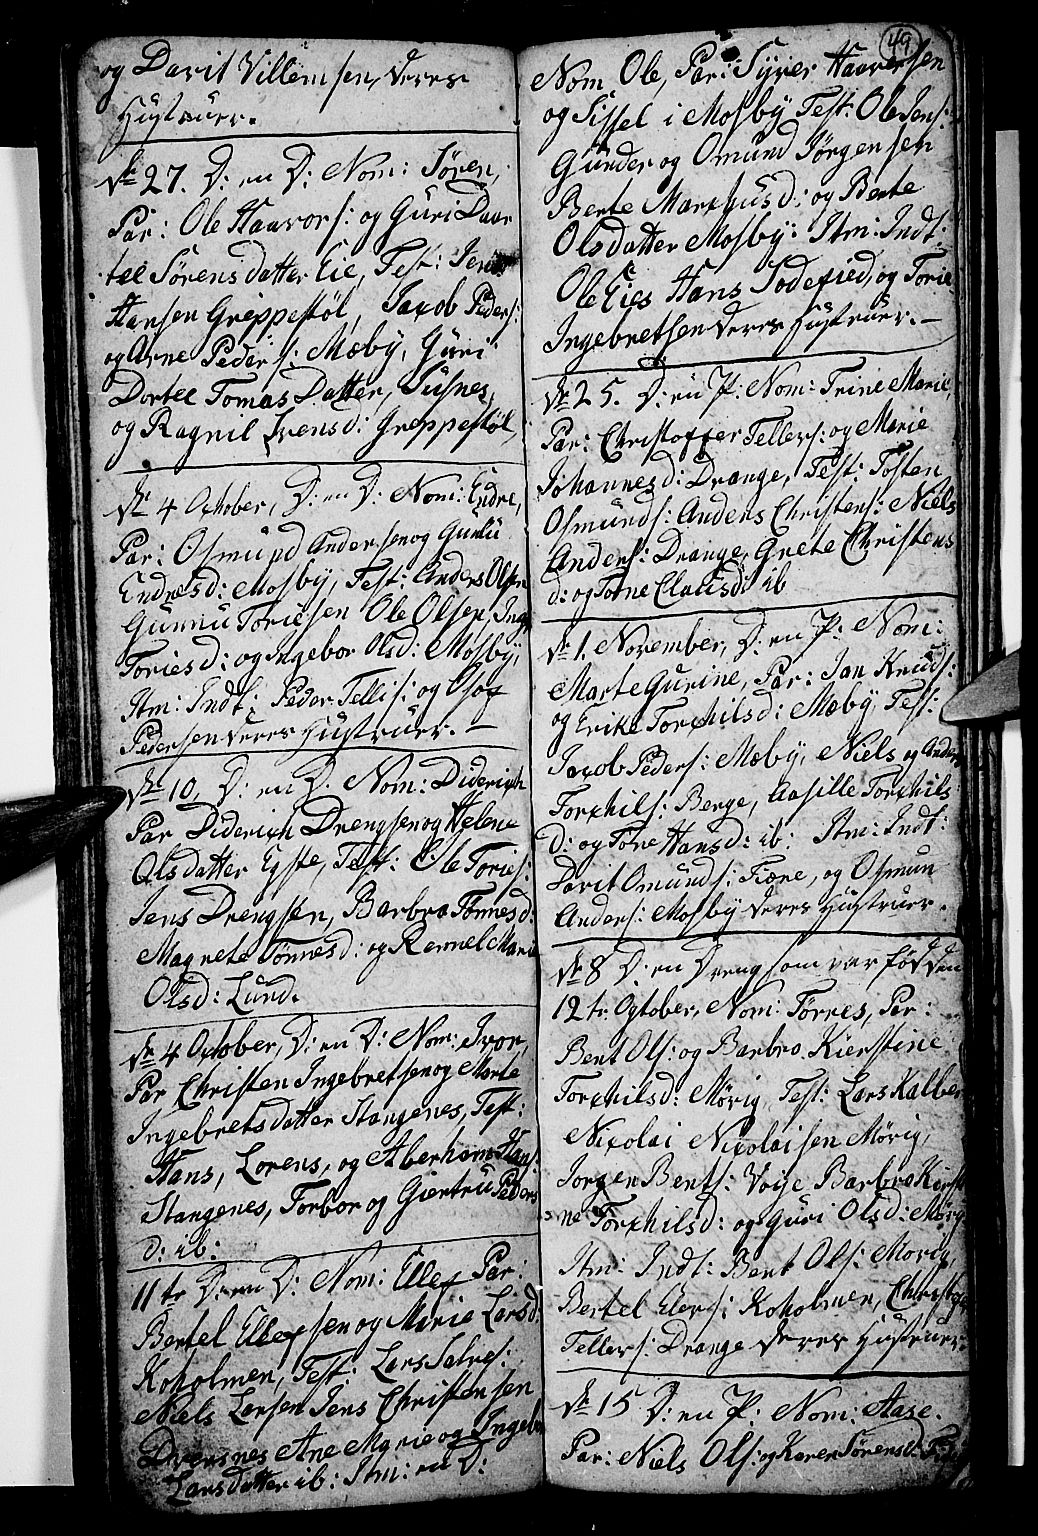 og Davit Villemsen, deres
Hustruer.
Dr 27. D: en D: Nom: Søren,
Par: Ole Haavors: og Guri Daar
tee Sørens datter Eie, Test: Jens
Hansen Greppestøl, Jacob Peders:
og Arne Peders: Mæby, Guri
Dortee Tomas Datter,
og Ragnil Ivens d: Greppestøl,
Dr 4 October, D: en D: Nom: Endre,
Par: Osmund Andersen og Gunnu
Endresd: Mosby, Test: Anders Olsen
Gunnu Toriesen Ole Olsen, Inge
Tories d: og Ingebor Olsd: Mosby,
Itm: Indt: Peder Tellis: og
Pedersen deres Hustruer. —
Dr 10, D: en D. Nom: Diderich
Par Diderich Drengsen og Helene
Olsdatter Egste, Test: Ole Tories:
Jens Drengsen, Barbro Tønnes d:
Magnete Tønnes d: og Rennel Marie
Olsd: Lund.
Dr 4 October, D: en D: Nom: Ivor,
Par Christen Ingebretsen og Marte
Ingebrets datter Stangenes, Test:
Hans, Lorens, og Aberham Hans:
Stangenes, Torbor og Giertru Peders
d: ib:
11 tr D: en D: Nom: Ellef Par:
Bertel Ellefsen og Marie Lars d:
Koholmen, Test: Lars Salves:
Niels Larsen Jens Christensen
Drensnes Ane Marie og Ingebor
Larsdatter ib: Itm: en D:
49.
Nom Ole, Par: Syver Haaversen
og Sissel i Mosby Test: Ole Jens:
Gunder og Omund Jørgensen
Berte Marchusd: og Berte
Olsdatter Mosby: Itm: Indt:
Ole Eies Hans Sodefied, og Torie
Ingebretsen deres Hustruer. —
Dr 25. D: en P: Nom: Trine Marie,
Par: Christoffer Tellers: og Marie
Johannes d: Drange, Test: Tosten
Osmunds: Anders Christens: Niels
Anders: Drange, Grete Christens
d: og Tone Clausd: ib
Dr 1. November, D: en P: Nom:
Marte Gurine, Par: Jan Knuds:
og Erike Torchilsd: Mæby, Test:
Jacob Peders: Mæby, Niels og Anders
Torchils: Berge, Aasille Torchils
D: og Tone Hansd: ib: Itm: Indt:
Davit Omunds: Fiære, og Osmun
Anders: Mosby deres Hustruer.
Dr 8 D: en Dreng som var fød den
12 tr. Ogtober, Nom: Tørres, Par:
Bent Ols: og Barbro Kierstine
Torchilsd: Mørig, Test: Lars Kalber
Nicolai Nicolaisen Mørig,
Jorgen Bents: Voije Barbro Kiersti
ne Torchilsd: og Guri Olsd: Mørig
Itm: Indt: Bent Ols: Mørig,
Bertel Elers: Koholmen, Christoffer
Tellers: Drange deres Hustruer
Dr 15 D: en P: Nom: Aase.
Par: Niels Ols: og Karen Sørensd: